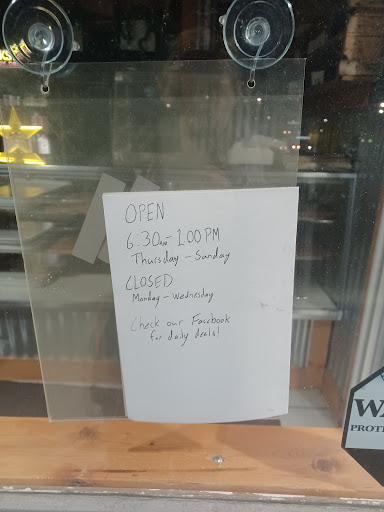 OPEN
6:30am - 1:00 PM
Thursday - Sunday
CLOSED
Monday - Wednesday
Check our Facebook
for daily deals!